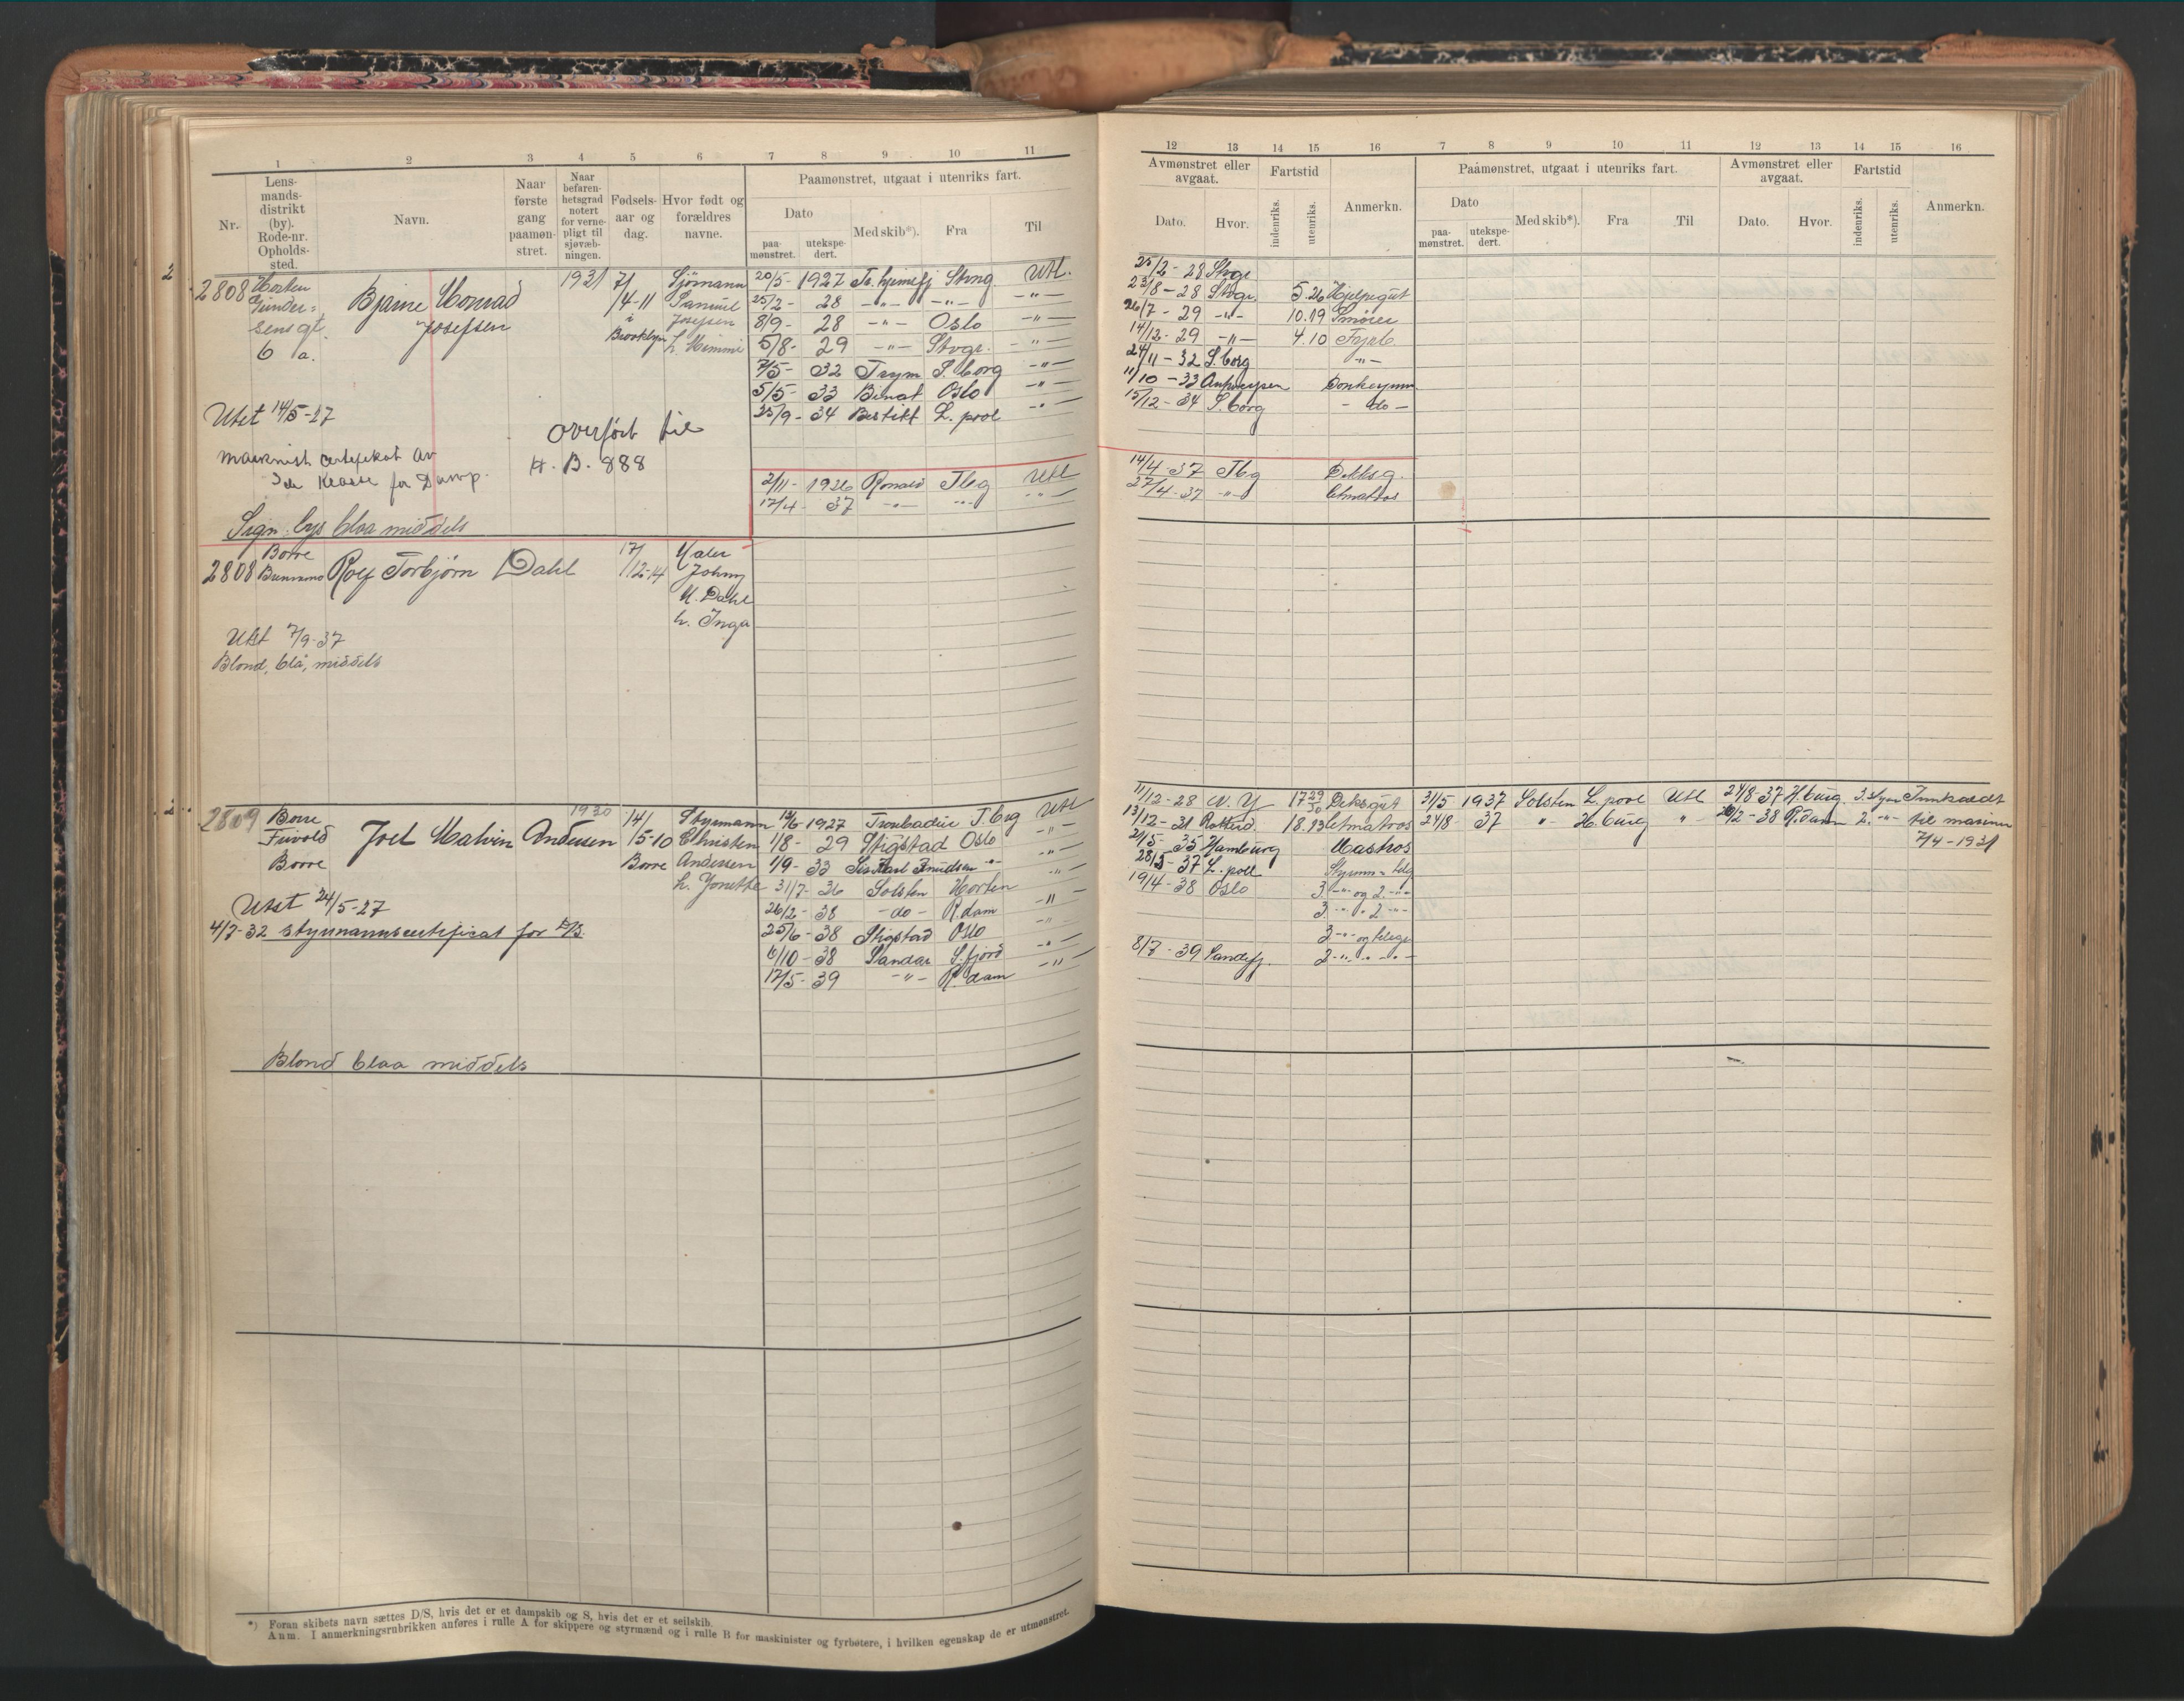 1 2 3 4 5 6 7 8 9 10 11
Nr.
Lens-
mands-
distrikt
(by).
Rode-nr.
Opholds-
sted.
Navn.
Naar
første
gang
paamøn-
stret.
Naar
befaren-
hetsgrad
notert
for verne-
pligt til
sjøvæb-
ningen.
Fødsels-
aar og
dag.
Hvor født og
forældres
navne.
Paamønstret, utgaat i utenriks fart.
Dato
paa-
mønstret.
utekspe-
dert.
Med skib*).
Fra
Til
2
2808 Horten
Gunder=
sens gt.
6 a.
Bjarne Konrad
Josefsen
1931
7/
/4-11
i
Brooklyn
Sjømann
Samuel
Josefsen
h. Mimmi
20/5- 1927 Stvng. Utl.
25/2- 28 -"- -"- -"-
8/9- 28 -"- Oslo -"-
5/8- 29 -"- Stvgr. -"-
7/5- 32 Trym S.borg -"-
5/5- 33 Oslo -"-
25/9- 34 Bestikt L.pool -"-
Utst 14/5-27
overført til
H. B. 888
maskinist certifikat av
3die Klasse for Damp.
Sign: lys blaa middels
2/11- 1936 Ronald Tbg Utl
17/4- 37 -"- -"- -"-
Borre
2808 Rolf Torbjørn Dahl
17/
/12-14
Johny
M. Dahl
h. Inga
Utst 7/9-37
Blond, blå, middels
2
2809 Borre
Borre
Joel Malvin Andersen
1930
14/
/5-10
Borre
Styrmann
Christen
Andersen
h. Jonette
1927 Troubadur T.brg Utl
1/8- 29 Stigstad Oslo -"-
1/9- 33 Knudsen -"- -"-
31/7- 36 Solsten Horten -"-
26/2- 38 -do- R.dam -"-
25/6- 38 Stigstad Oslo -"-
6/10- 38 Sandar S.fjord -"-
17/5- 39 -"- R.dam -"-
Utst 24/5-27
4/7-32 styrmannscertifikat for
Blond blaa middels
*) Foran skibets navn sættes D/S, hvis det er et dampskib og S, hvis det er et seilskib.
Anm. I anmerkningsrubrikken anføres i rulle A for skippere og styrmænd og i rulle B for maskinister og fyrbøtere, i hvilken egenskap de er utmønstret.
12 13 14 15 16 7 8 9 10 11 12 13 14 15 16
Avmønstret eller
avgaat.
Dato.
Hvor.
Fartstid
indenriks.
utenriks.
Anmerkn.
Paamønstret, utgaat i utenriks fart.
Dato
paa-
mønstret.
utekspe-
dert.
Med skib*).
Fra
Til
Avmønstret eller
avgaat.
Dato.
Hvor.
Fartstid
indenriks.
utenriks.
Anmerkn.
25/2- 28 Stvgr
23/8- 28 Stvgr. 5.26 Hjelpegut
26/7- 29 -"- 10.19 Smører
14/12- 29 -"- 4.10 Fyrb
24/11- 32 S.borg -"-
11/10- 33 Antwerpen Donkeymn
15/12- 34 S.borg -do-
14/4-37 Tbg Dekksg.
27/4-37 -"- Letmatros
11/12-28 N.Y Deksgut
13/12-31 Rotterd. 18.23 Letmatros
2/5-35 Hamburg Matros
28/5-37 L.poll
19/4-38 Oslo 3. -"- og 2. -"-
3. -"- 2 -"-
8/7-39 Sandefj. 2 -"-
31/5 1937 Solsten L.pool Utl 24/8-37 H.burg 3. styrm Innkaldt
24/8- 37 " H.burg " R.dam 2. -"- til marinen
7/4-1931